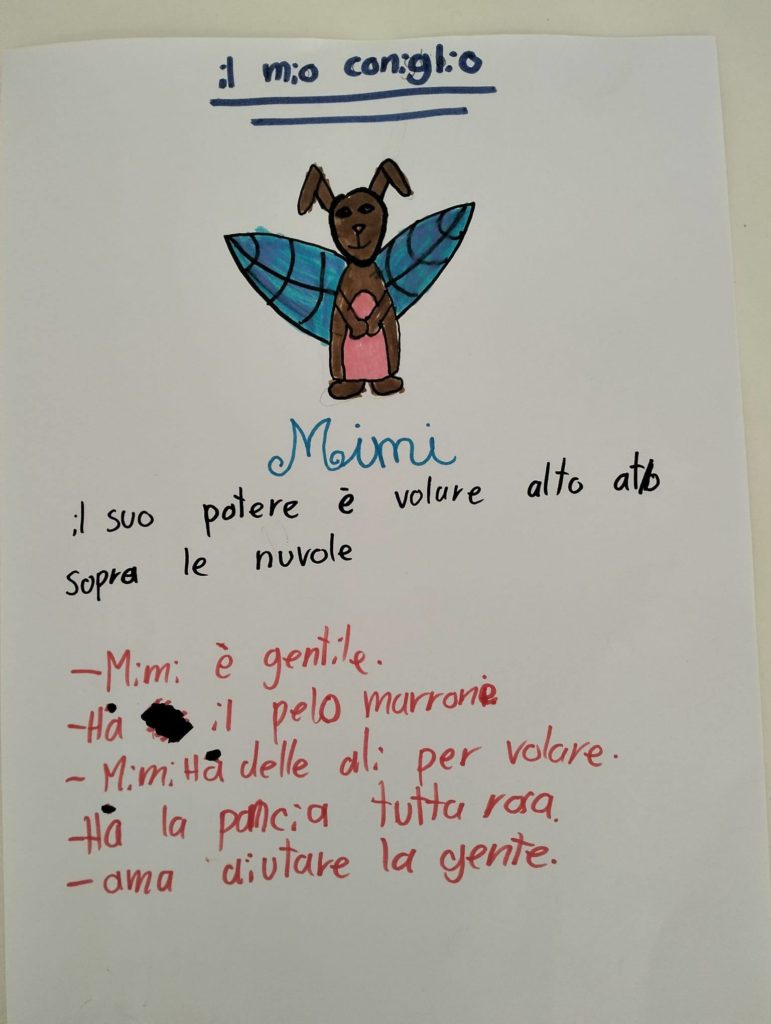 il mio coniglio
Mimi
il suo potere è volare alto
sopra le nuvole
-Mimi è gentile.
-Ha il pelo marrone
- Mimi Ha delle ali per volare.
-Ha la pancia tutta rosa.
-ama aiutare la gente.